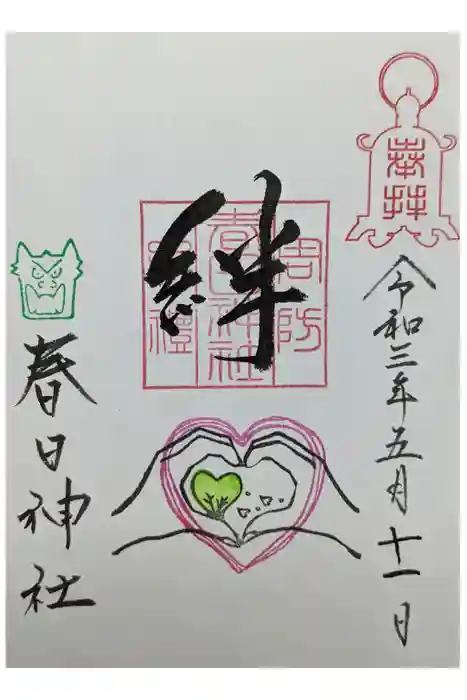 奉拝
令和三年五月十一日
絆
周防
春日神社
春日神社